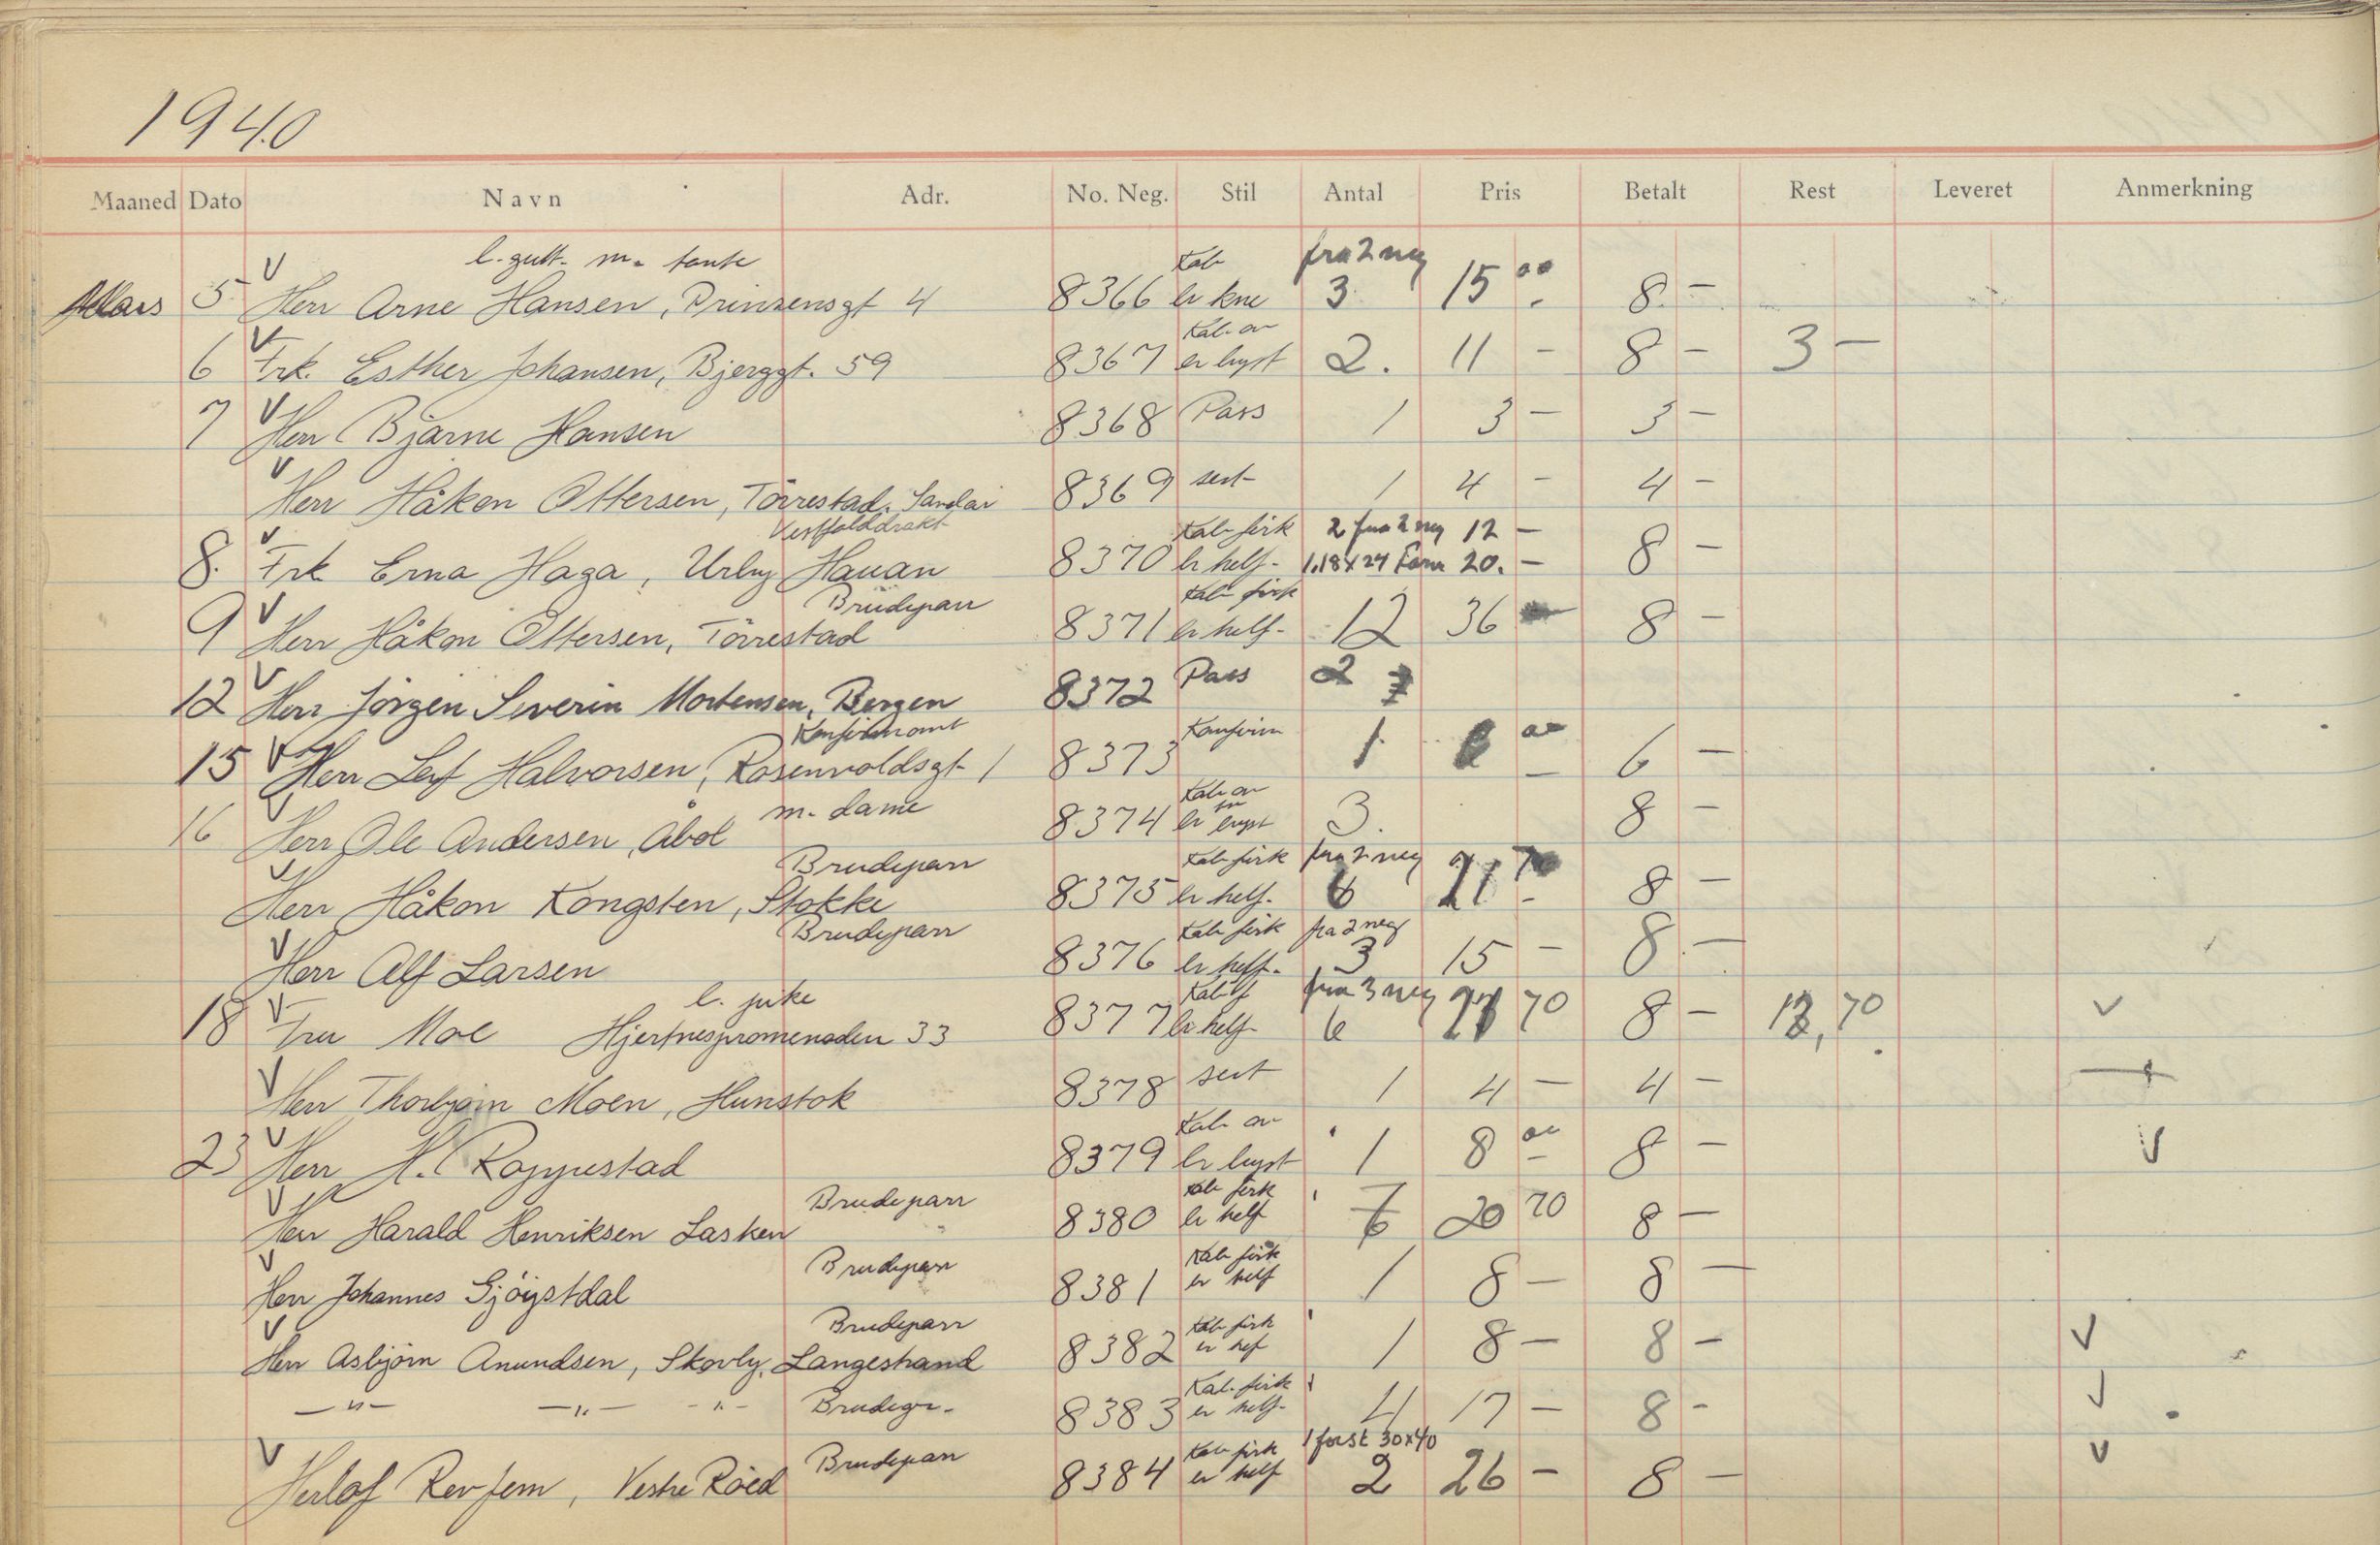 1940
Maaned Dato Navn Adr. No. Neg. Stil Antal Pris Betalt Rest Leveret Anmerkning
l. gutt. m. tante Kab fra 2 neg
Mars 5 V Herr Arne Hansen, Prinsensgt 4 8366 br kne 3 15 00 8. -
Kab. av
6 V Frk. Esther Johansen, Bjerggt. 59 8367 br byst 2. 11 - 8 - 3 -
7 V Herr Bjarne Hansen 8368 Pass 1 3 - 3 -
V Herr Håkon Ottersen, Törrestad. 8369 sert 1 4 - 4 -
Vestfolddrakt Kab firk 2 fra 2 neg 12 -
8. V Frk Erna Haga, Urby Hauan 8370 br helf. 1. 18x24 20. - 8 -
Brudeparr Kab firk
9 V Herr Håkon Ottersen, Törrestad 8371 br helf. 12 36 8 -
12 V Herr Jörgen Severin Mortensen, Bergen 8372 Pass 2
Konfirmant Konfirm
15 V Herr Leif Halvorsen, Rosenvoldsgt 1 8373 1. 00 6 -
m. dame Kab av
16 V Herr Ole Andersen, Åbol 8374 br byst 3. 8 -
Brudeparr Kab firk fra 2 neg
V Herr Håkon Kongsten, Stokke 8375 br helf. 6 21 8 -
Brudeparr Kab firk fra 2 neg
V Herr Alf Larsen 8376 br helf. 3 15 - 8 -
l. pike Kab f fra 3 neg
18 V Fru Moe Hjertnespromenaden 33 8377 br helf 6 70 8 - 70 V
V Herr Thorbjørn Moen, Hunstok 8378 sert 1 4 - 4 -
Kab av
23 V Herr H. Roppestad 8379 br byst 1 8 00 8 - V
Brudeparr Kab firk
V Herr Harald Henriksen Lasken 8380 br helf 6 20 70 8 -
Brudeparr Kab firk
V Herr Johannes Gjöystdal 8381 br helf 1 8 - 8 -
Brudeparr Kab firk
V Herr Asbjörn Anundsen, Skovly, Langestrand 8382 br hef 1 8 - 8 - V
Kab. firk
- " - - " - - " - Brudepr. 8383 br helf. 4 17 - 8 - V
Brudeparr Kab firk 1 forst 30x40
V Herlof Revfem, Vestre Röed 8384 br helf 2 26 - 8 - V